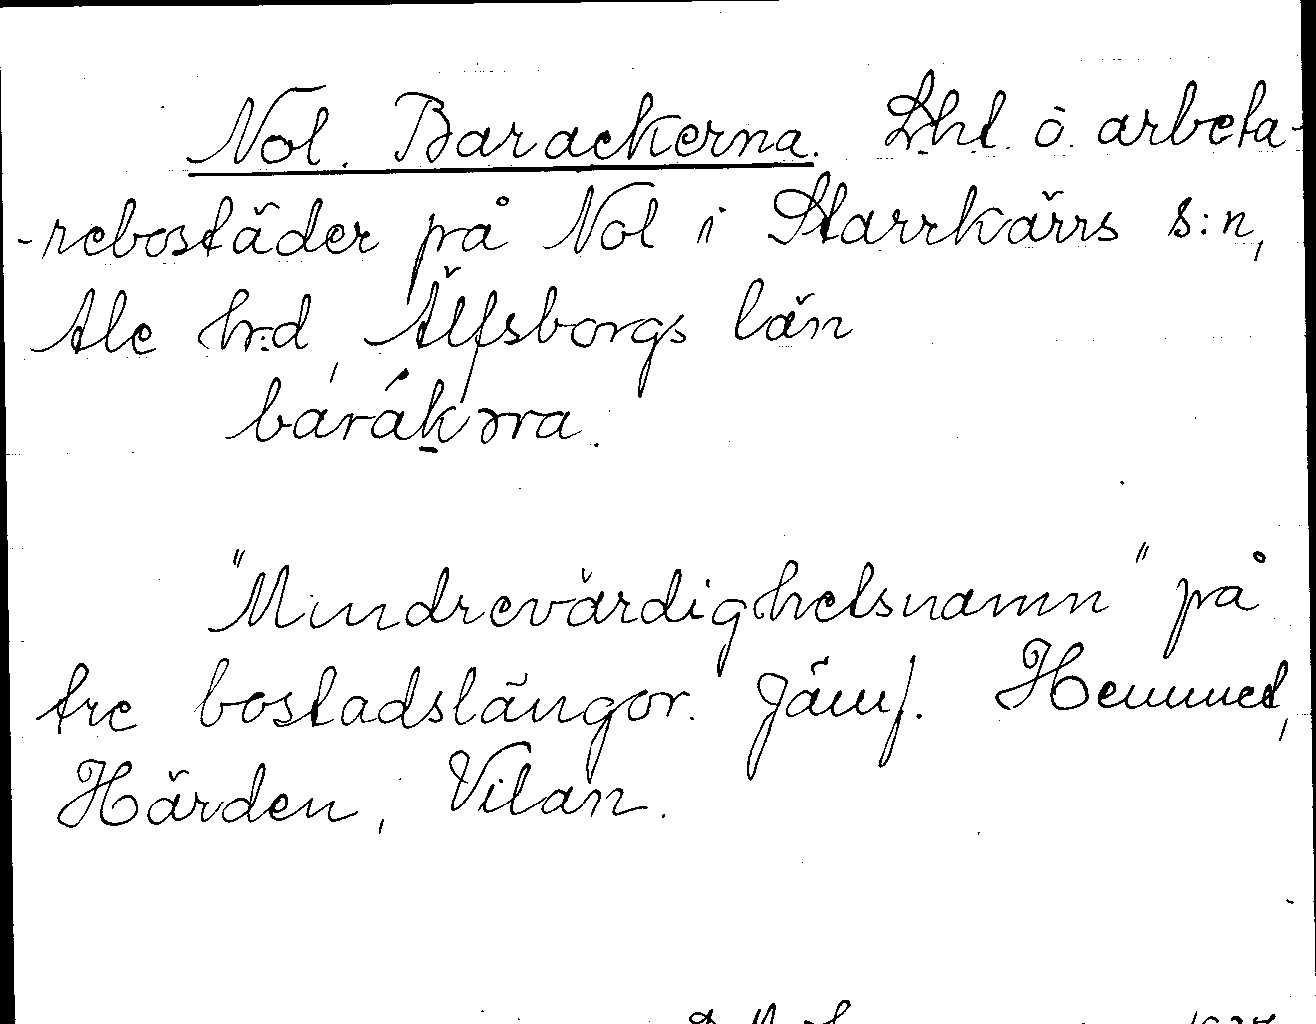 Nol. Barackerna. Lht. ö. arbeta-
-rebostäder på Nol i Starrkärrs s:n,
Ale h:d, Älfsborgs län
bàrák ərra.
"Mindrevärdighetsnamn" på
tre bostadslängor. Jämf. Hemmet,
Härden, Vilan.